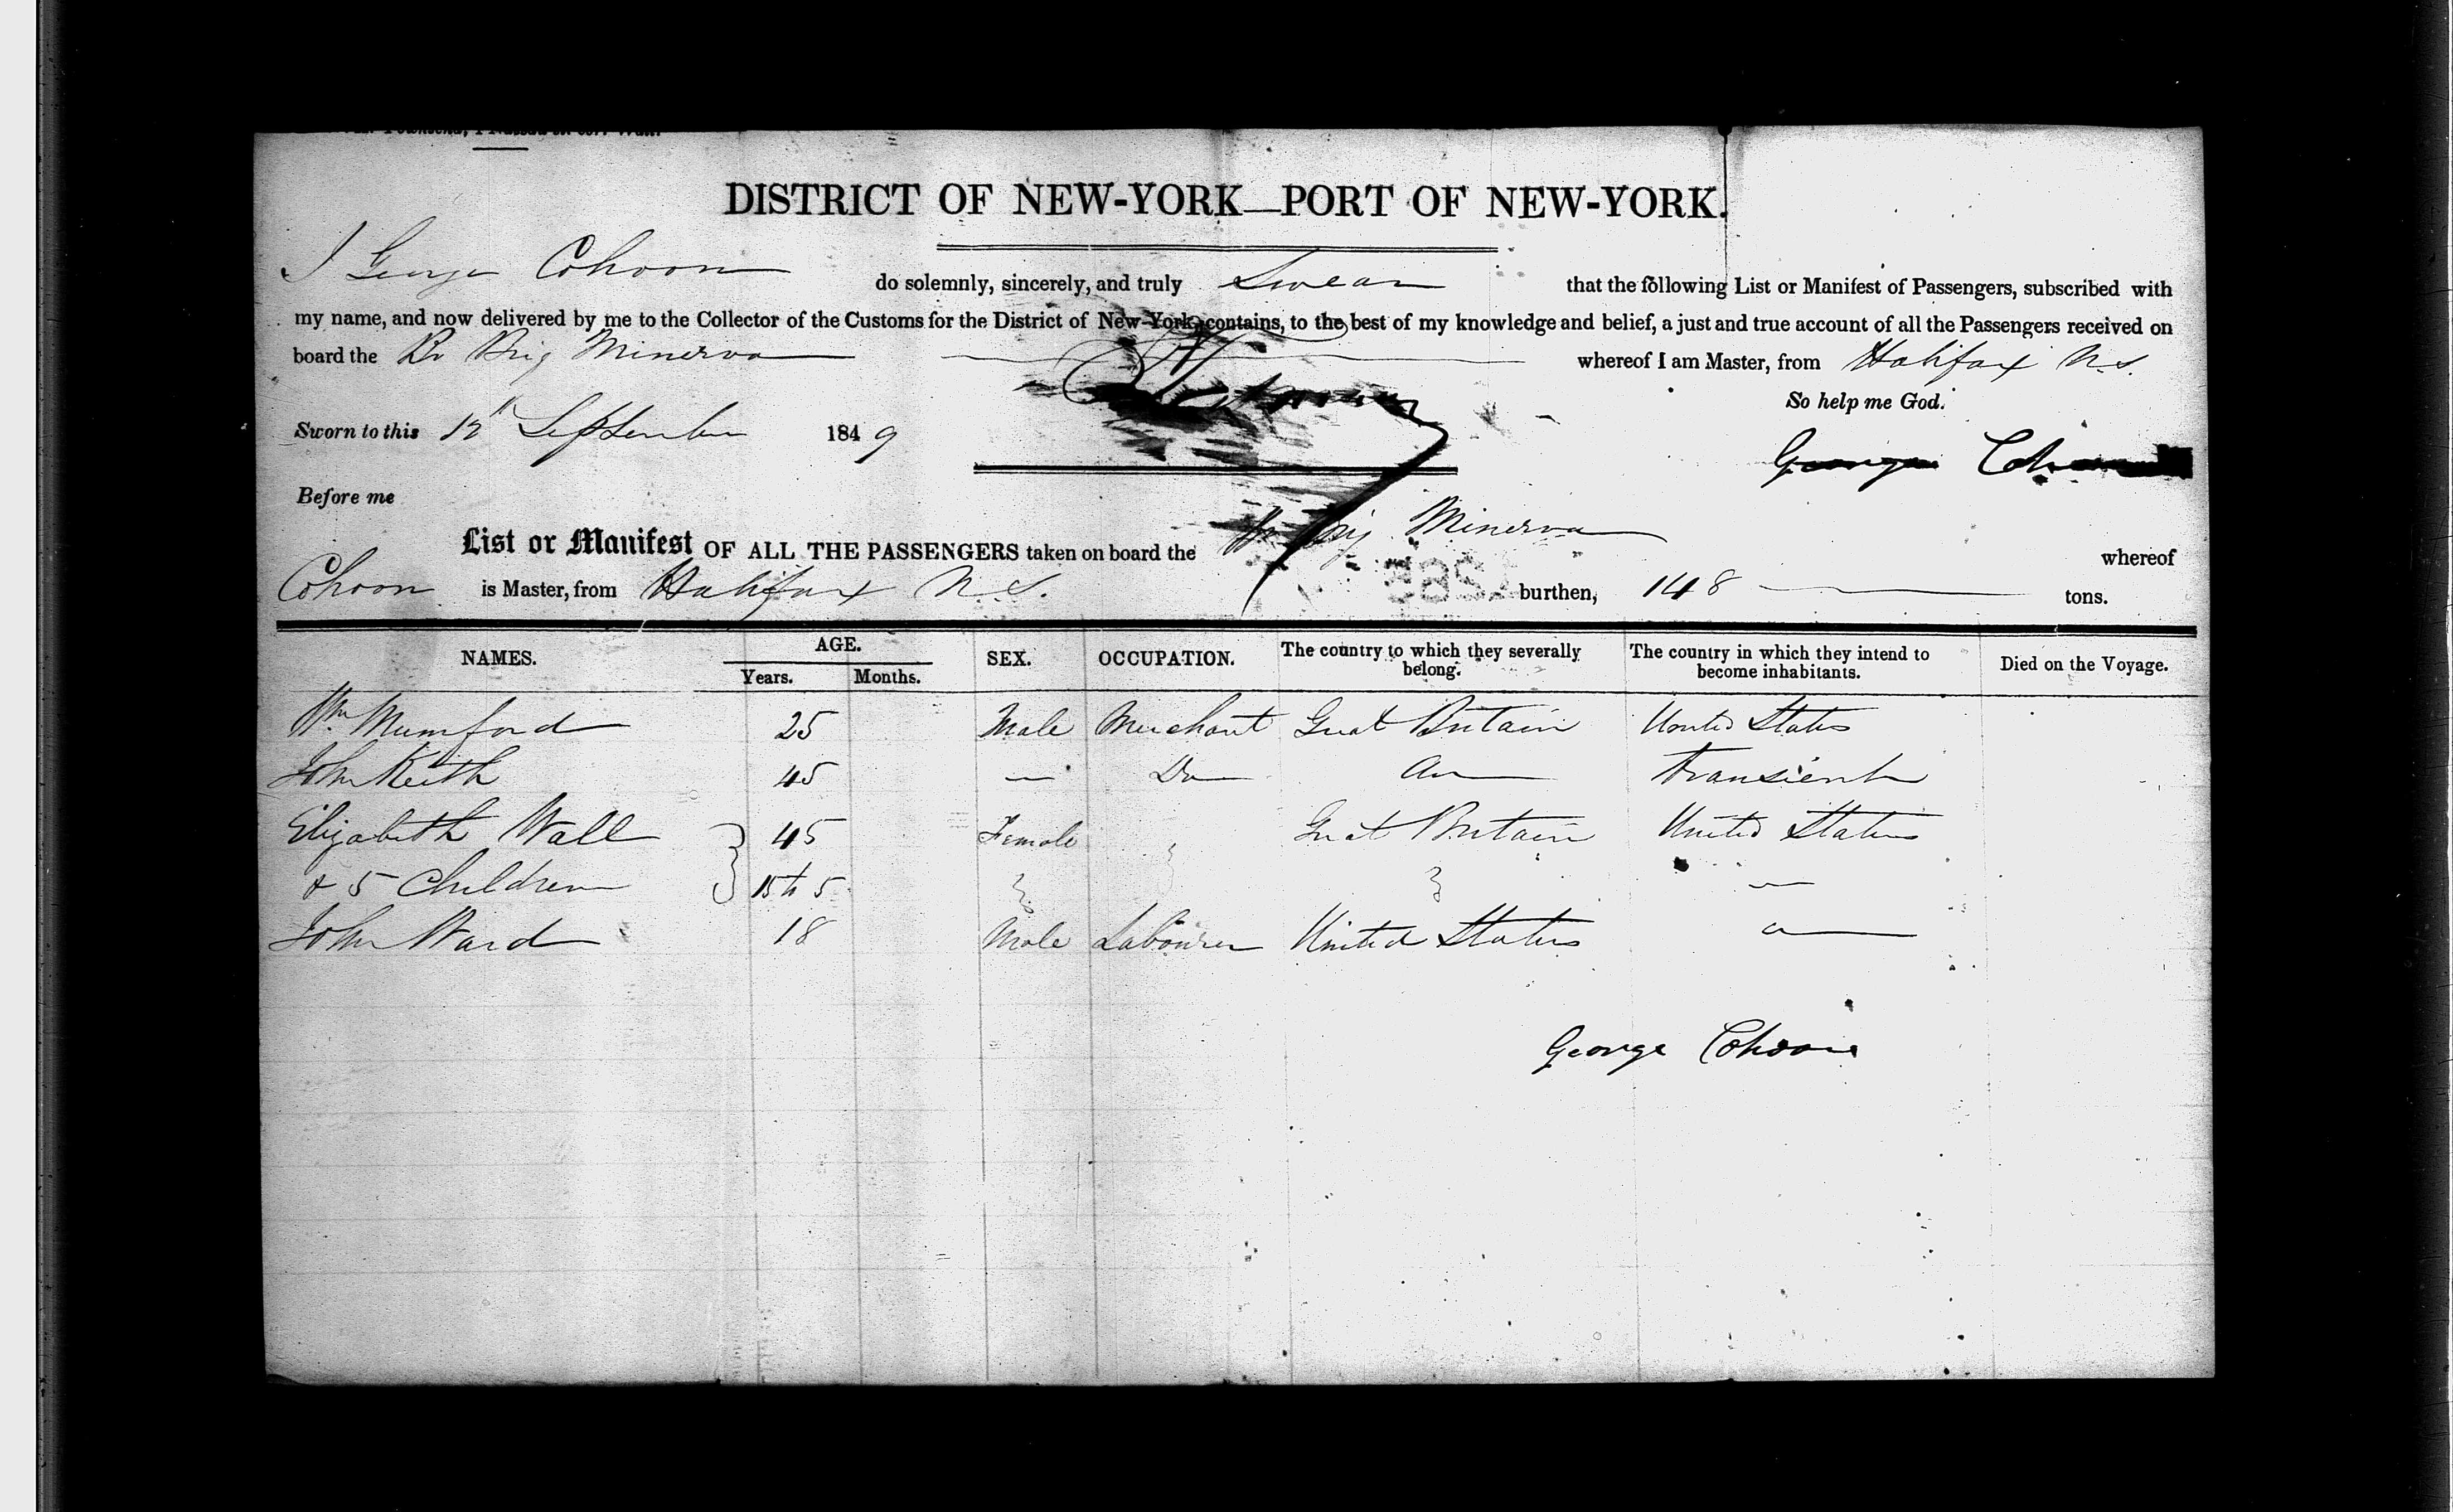 DISTRICT OF NEW-YORK—PORT OF NEW-YORK.
I George Cohoon do solemnly, sincerely, and truly Swear that the following List or Manifest of Passengers, subscribed with
my name, and now delivered by me to the Collector of the Customs for the District of New-York, contains, to the best of my knowledge and belief, a just and true account of all the Passengers received on
board the Br Brig Minerva whereof I am Master, from Halifax N.S.
So help me God.
Sworn to this 12th September 1849
George Cohoon
Before me
List or Manifest OF ALL THE PASSENGERS taken on board the Br Brig Minerva whereof
Cohoon is Master, from Halifax N.S. burthen, 148 tons.
NAMES. AGE. Years. Months. SEX. OCCUPATION. The country to which they severally belong. The country in which they intend to become inhabitants. Died on the Voyage.
Wm Mumford 25 Male Merchant Great Britain United States
John Keith 45 — Do Transient
Elizabeth Wall 45 Female Great Britain United States
& 5 Children 15 to 5 —
John Ward 18 Male Labourer United States
George Cohoon